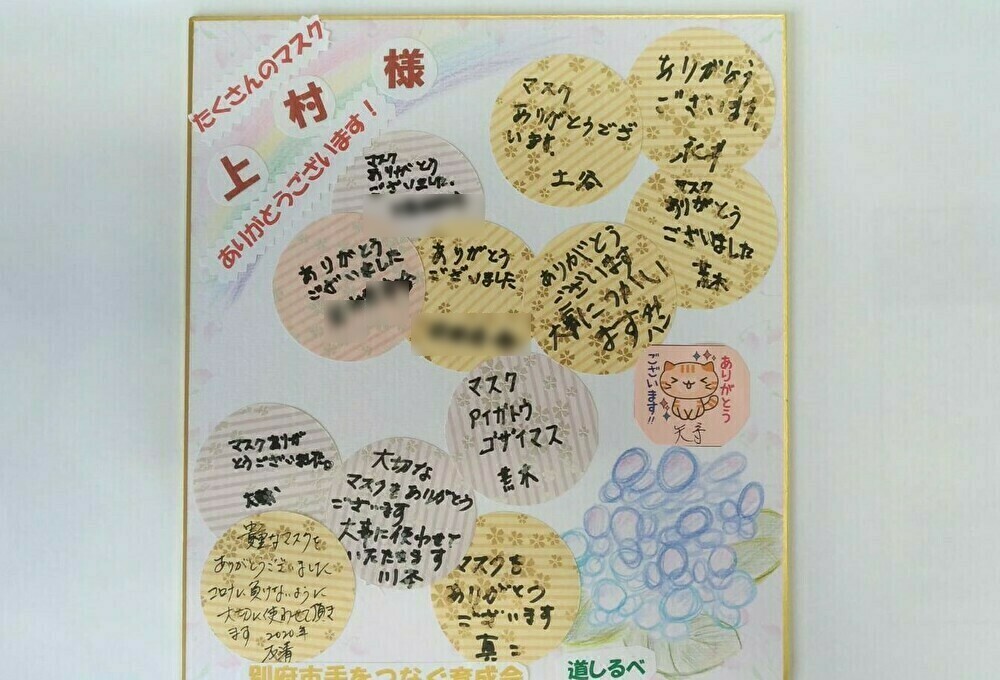 たくさんのマスク
上村様
ありがとうございます！
マスク
ありがとうござ
います。
土谷
ありがとう
ございます。
マスク
ありがとう
ございました。
マスク
ありがとう
ございました
荒木
ありがとう
ございました
ありがとう
ございました
ありがとう
ございます
大事につかい
ます
ありがとう
ございます!!
マスク
アイガトウ
ゴザイマス
荒木
マスクありが
とうございました。
大切な
マスクをありがとう
ございます
大事に使わせて
いただきます
川谷
貴重なマスクを
ありがとうございました
コロナに負けないように
大切に使わせて頂き
ます 2020年
友清
マスクを
ありがとう
ございます
真二
別府市手をつなぐ育成会
道しるべ